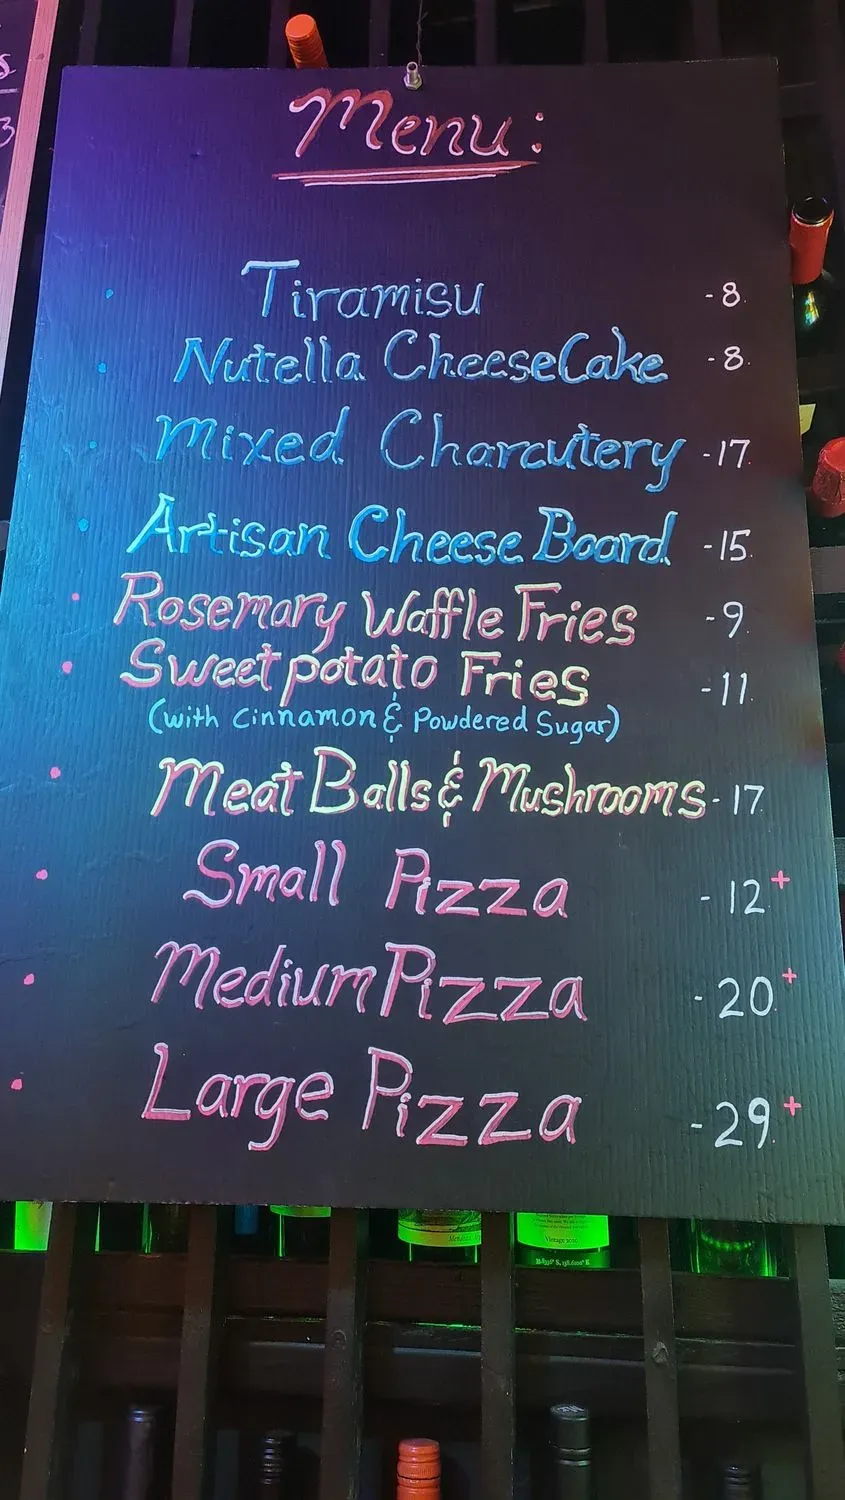 Menu:
Tiramisu -8.
Nutella CheeseCake -8.
Mixed Charcutery -17.
Artisan Cheese Board -15.
Rosemary Waffle Fries -9.
Sweet potato Fries -11.
(with Cinnamon & Powdered Sugar)
Meat Balls & Mushrooms -17.
Small Pizza -12+
Medium Pizza -20.+
Large Pizza -29.+
Vintage 2010